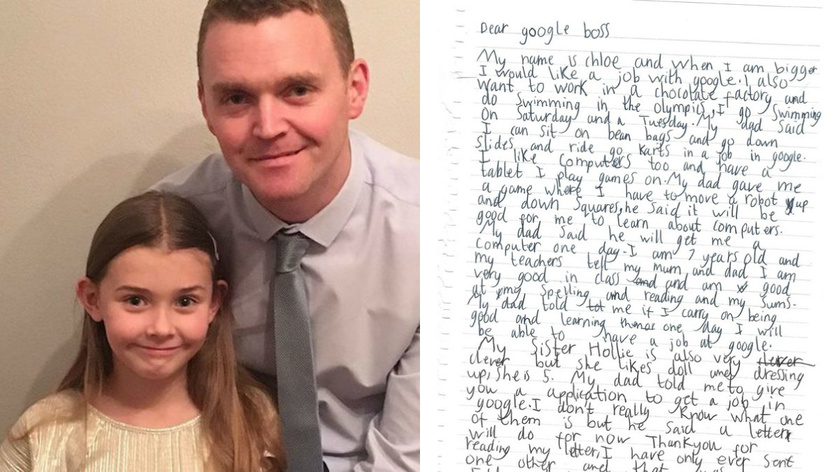 Dear google boss
My name is chloe and when I am bigger
I would like a job with google. I also
want to work in a chocolate factory and
do swimming in the olympics. I go Swimming
on Saturday and a Tuesday. My dad said
I can sit on bean bags and go down
slides and ride go karts in a job in google.
I like computers too and have a
tablet I play games on. My dad gave me
a game where I have to move a robot up
and down squares, he said it will be
good for me to learn about computers.
My dad said he will get me a
computer one day. I am 7 years old and
my teachers tell my mum and dad I am
very good in class and and am good
at my spelling and reading and my sums.
My dad told me if I carry on being
good and learning one day I will
be able to have a job at google.
My Sister Hollie is also very
clever but she likes doll and dressing
up, She is 5. My dad told me to give
you a application to get a job in
google. I don't really know what one
of them is but he said a letter
will do for now Thankyou for
reading my letter, I have only ever sent
one other and that